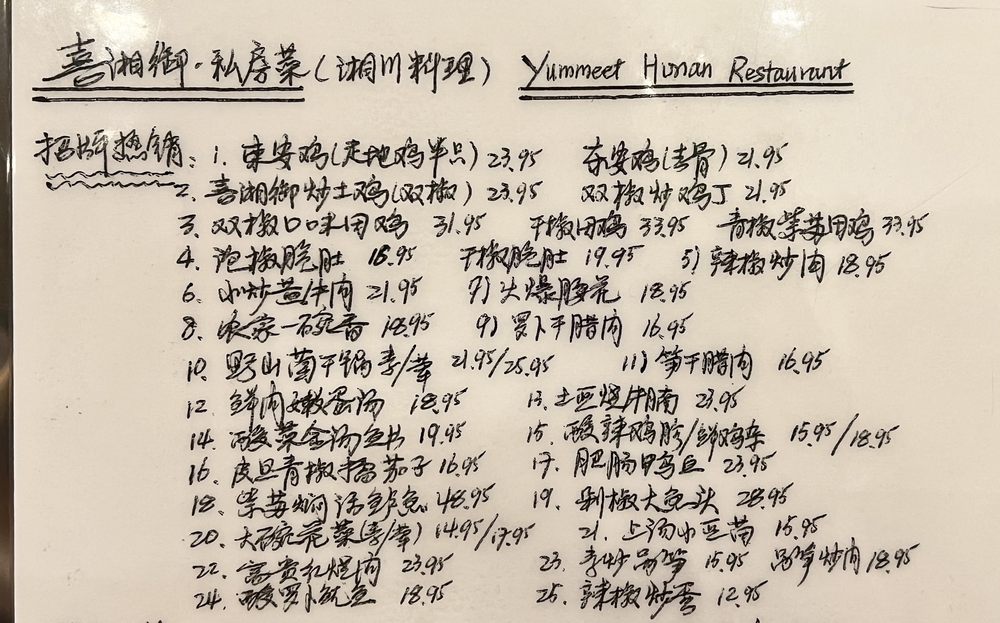 喜湘御·私房菜(湘川料理) Yummeet Hunan Restaurant
招牌热销: 1. 东安鸡(走地鸡半只) 23.95 东安鸡(去骨) 21.95
2. 喜湘御炒土鸡(双椒) 23.95 双椒炒鸡丁 21.95
3. 双椒口味田鸡 31.95 干椒田鸡 33.95 青椒紫苏田鸡 33.95
4. 泡椒脆肚 18.95 干椒脆肚 19.95 5) 辣椒炒肉 18.95
6. 小炒黄牛肉 21.95 7) 火爆腰花 18.95
8. 农家一碗香 18.95 9) 萝卜干腊肉 16.95
10. 野山菌干锅素/荤 21.95/25.95 11) 笋干腊肉 16.95
12. 鲜肉嫩蛋汤 18.95 13. 土豆煨牛腩 23.95
14. 酸菜金汤鱼片 19.95 15. 酸辣鸡胗/鲜鸡杂 15.95/18.95
16. 皮旦青椒擂茄子 16.95 17. 肥肠甲鸟血 23.95
18. 紫苏焖活鲈鱼 48.95 19. 剁椒大鱼头 28.95
20. 大碗花菜(素/荤) 14.95/17.95 21. 上汤小豆苗 15.95
22. 富贵红煨肉 23.95 23. 素炒 15.95 炒肉 18.95
24. 酸萝卜鱿鱼 18.95 25. 辣椒炒蛋 12.95